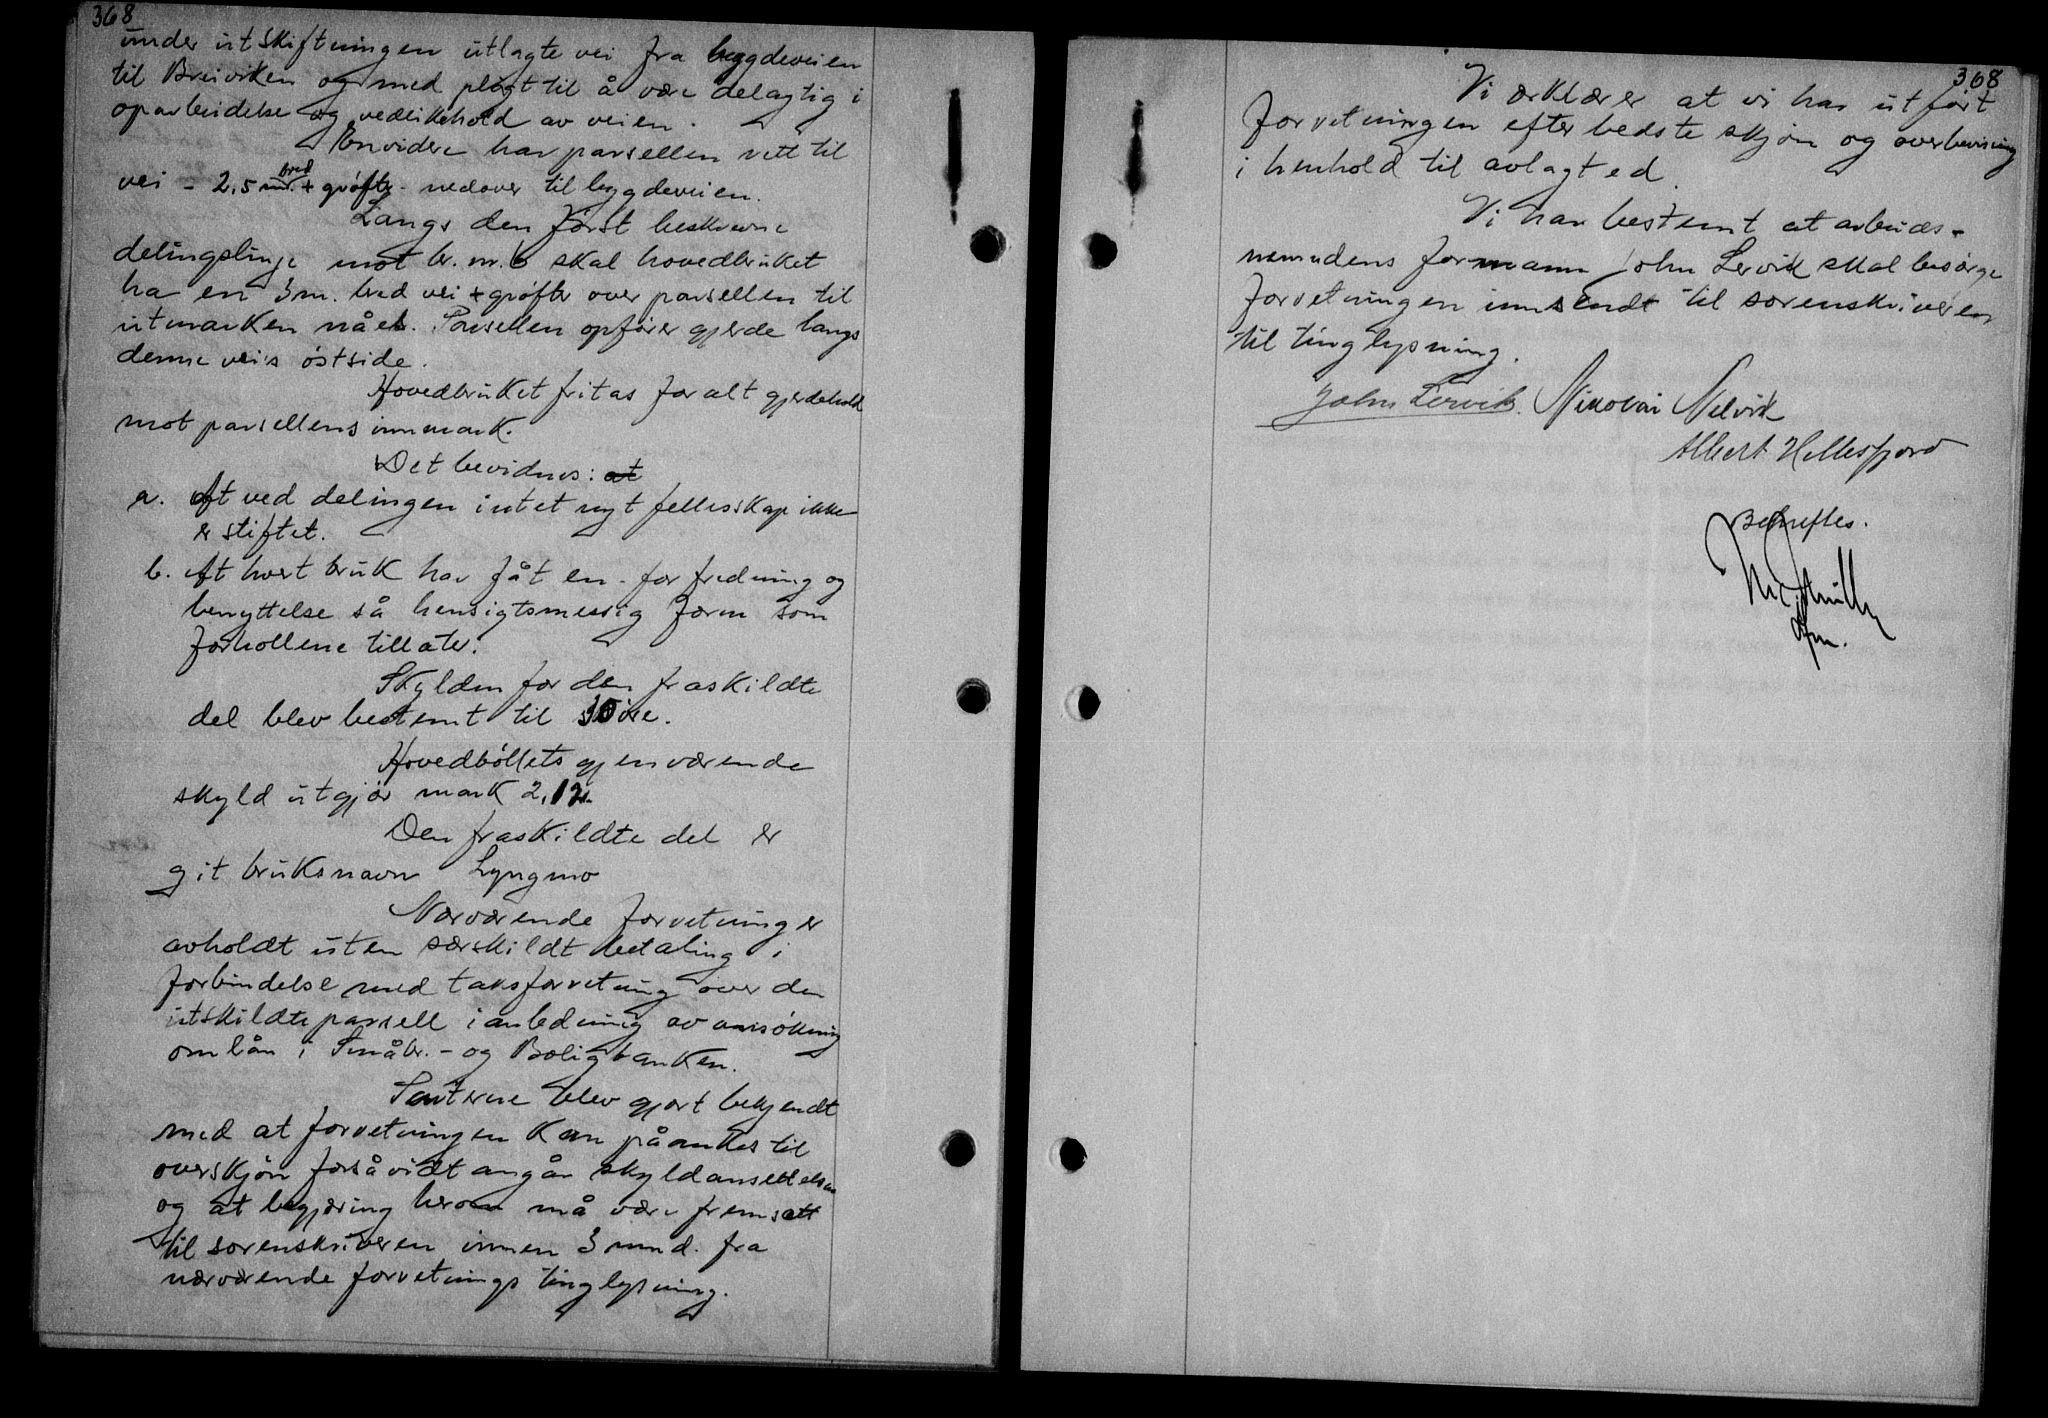 368
under utskiftningen utlagte vei fra bygdeveien
til Breiviken og med plegt til å være delagtig i
oparbeidelse og vedlikehold av veien.
Envidere har parsellen rett til
vei - 2,5 m. bred + grøfter - nedover til bygdeveien.
Langs den først beskrevne
delingslinje mot br. nr. 6 skal hovedbruket
ha en 3 m. bred vei + grøfter over parsellen til
utmarken nåes. Parsellen opfører gjerde langs
denne vei's østside.
Hovedbruket fritas for alt gjerdehold
mot parsellens innmark.
Det bevidnes: at
a. At ved delingen intet nyt fellesskap ikke
er stiftet.
b. At hvert bruk har fåt en - for fredning og
benyttelse så hensigtsmessig form som
forhollene tillater.
Skylden for den fraskildte
del blev bestemt til 10 øre.
Hovedbøllets gjenværende
skyld utgjør mark 2,12.
Den fraskildte del er
git bruksnavn Lyngmo
Nærværende forretning er
avholdt uten særskildt betaling i
forbindelse med taksforretning over den
utskildte parsell i anledning av ansøkning
om lån i Småbr.- og Boligbanken.
Parterne blev gjort bekjendt
med at forretningen kan påankes til
overskjøn forsåvidt angår skyldansettelsen
og at begjæring herom må være fremsatt
til sorenskriveren innen 3 mnd. fra
nærværende forretnings tinglysning.
368
Vi erklærer at vi har utført
forretningen efter bedste skjøn og overbevisning
i henhold til avlagt ed.
Vi har bestemt at arbeids-
nemndens formann John Lervik skal besørge
forretningen innsendt til sorenskriveren
til tinglysning.
John Lervik. Nikolai Nelvik
Albert Hellesfjord
Bekreftes.